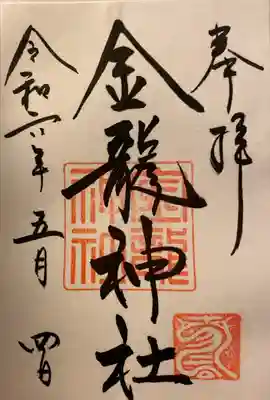 奉拝
金龍神社
令和六年五月四日
金龍神社